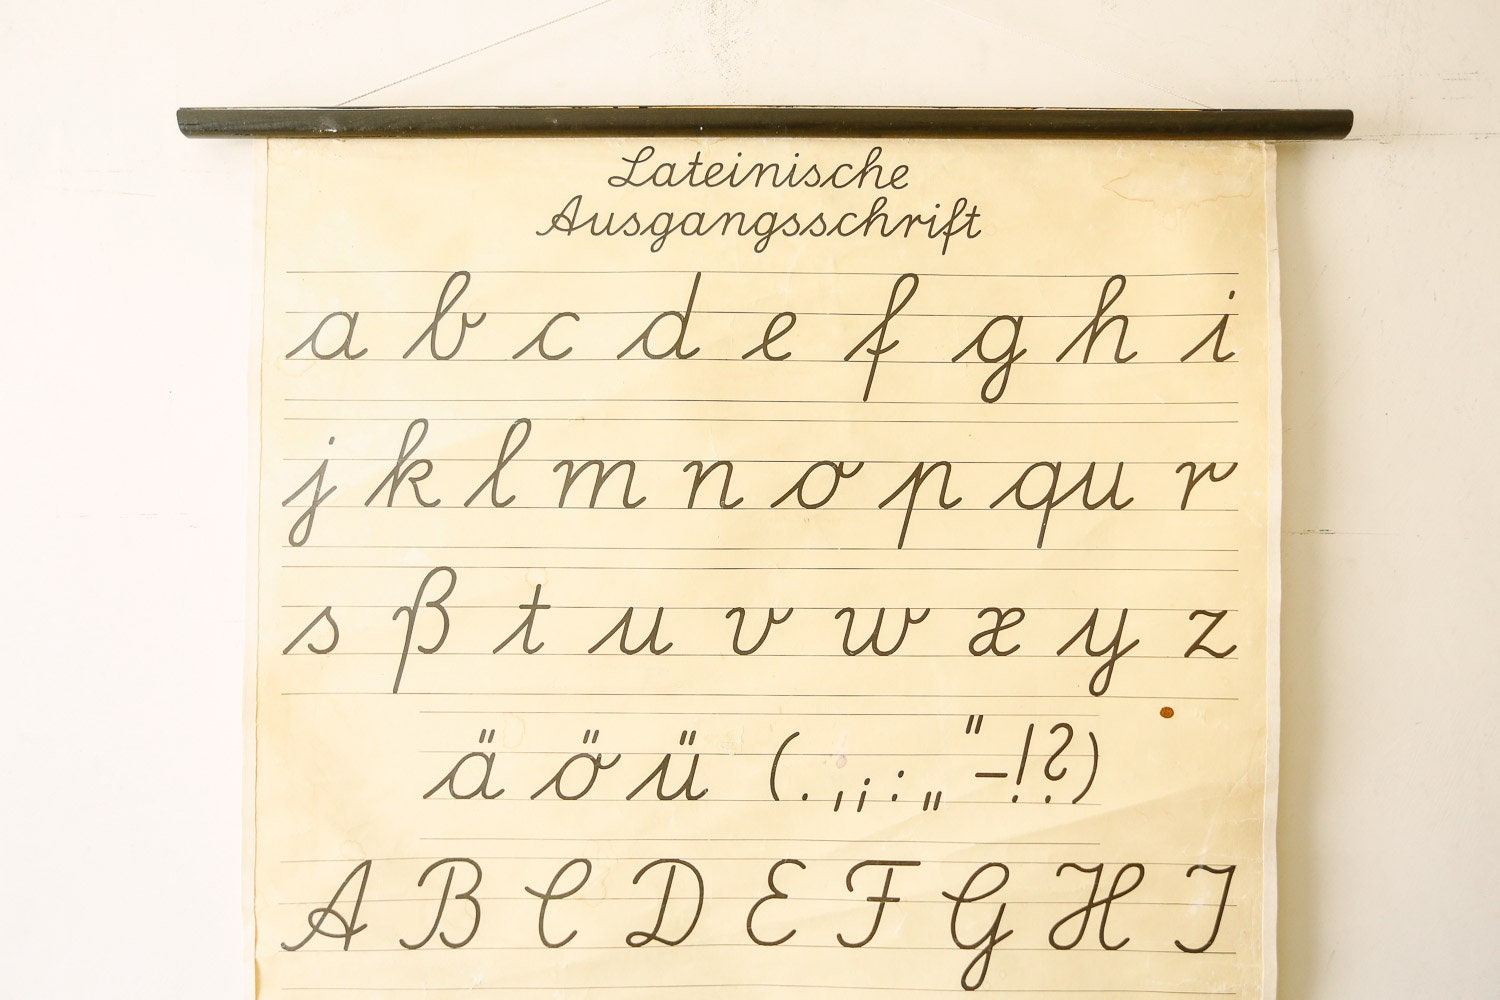 Lateinische
Ausgangsschrift
a b c d e f g h i
j k l m n o p qu r
s ß t u v w x y z
ä ö ü ( . , ; : „ " - ! ? )
A B C D E F G H I